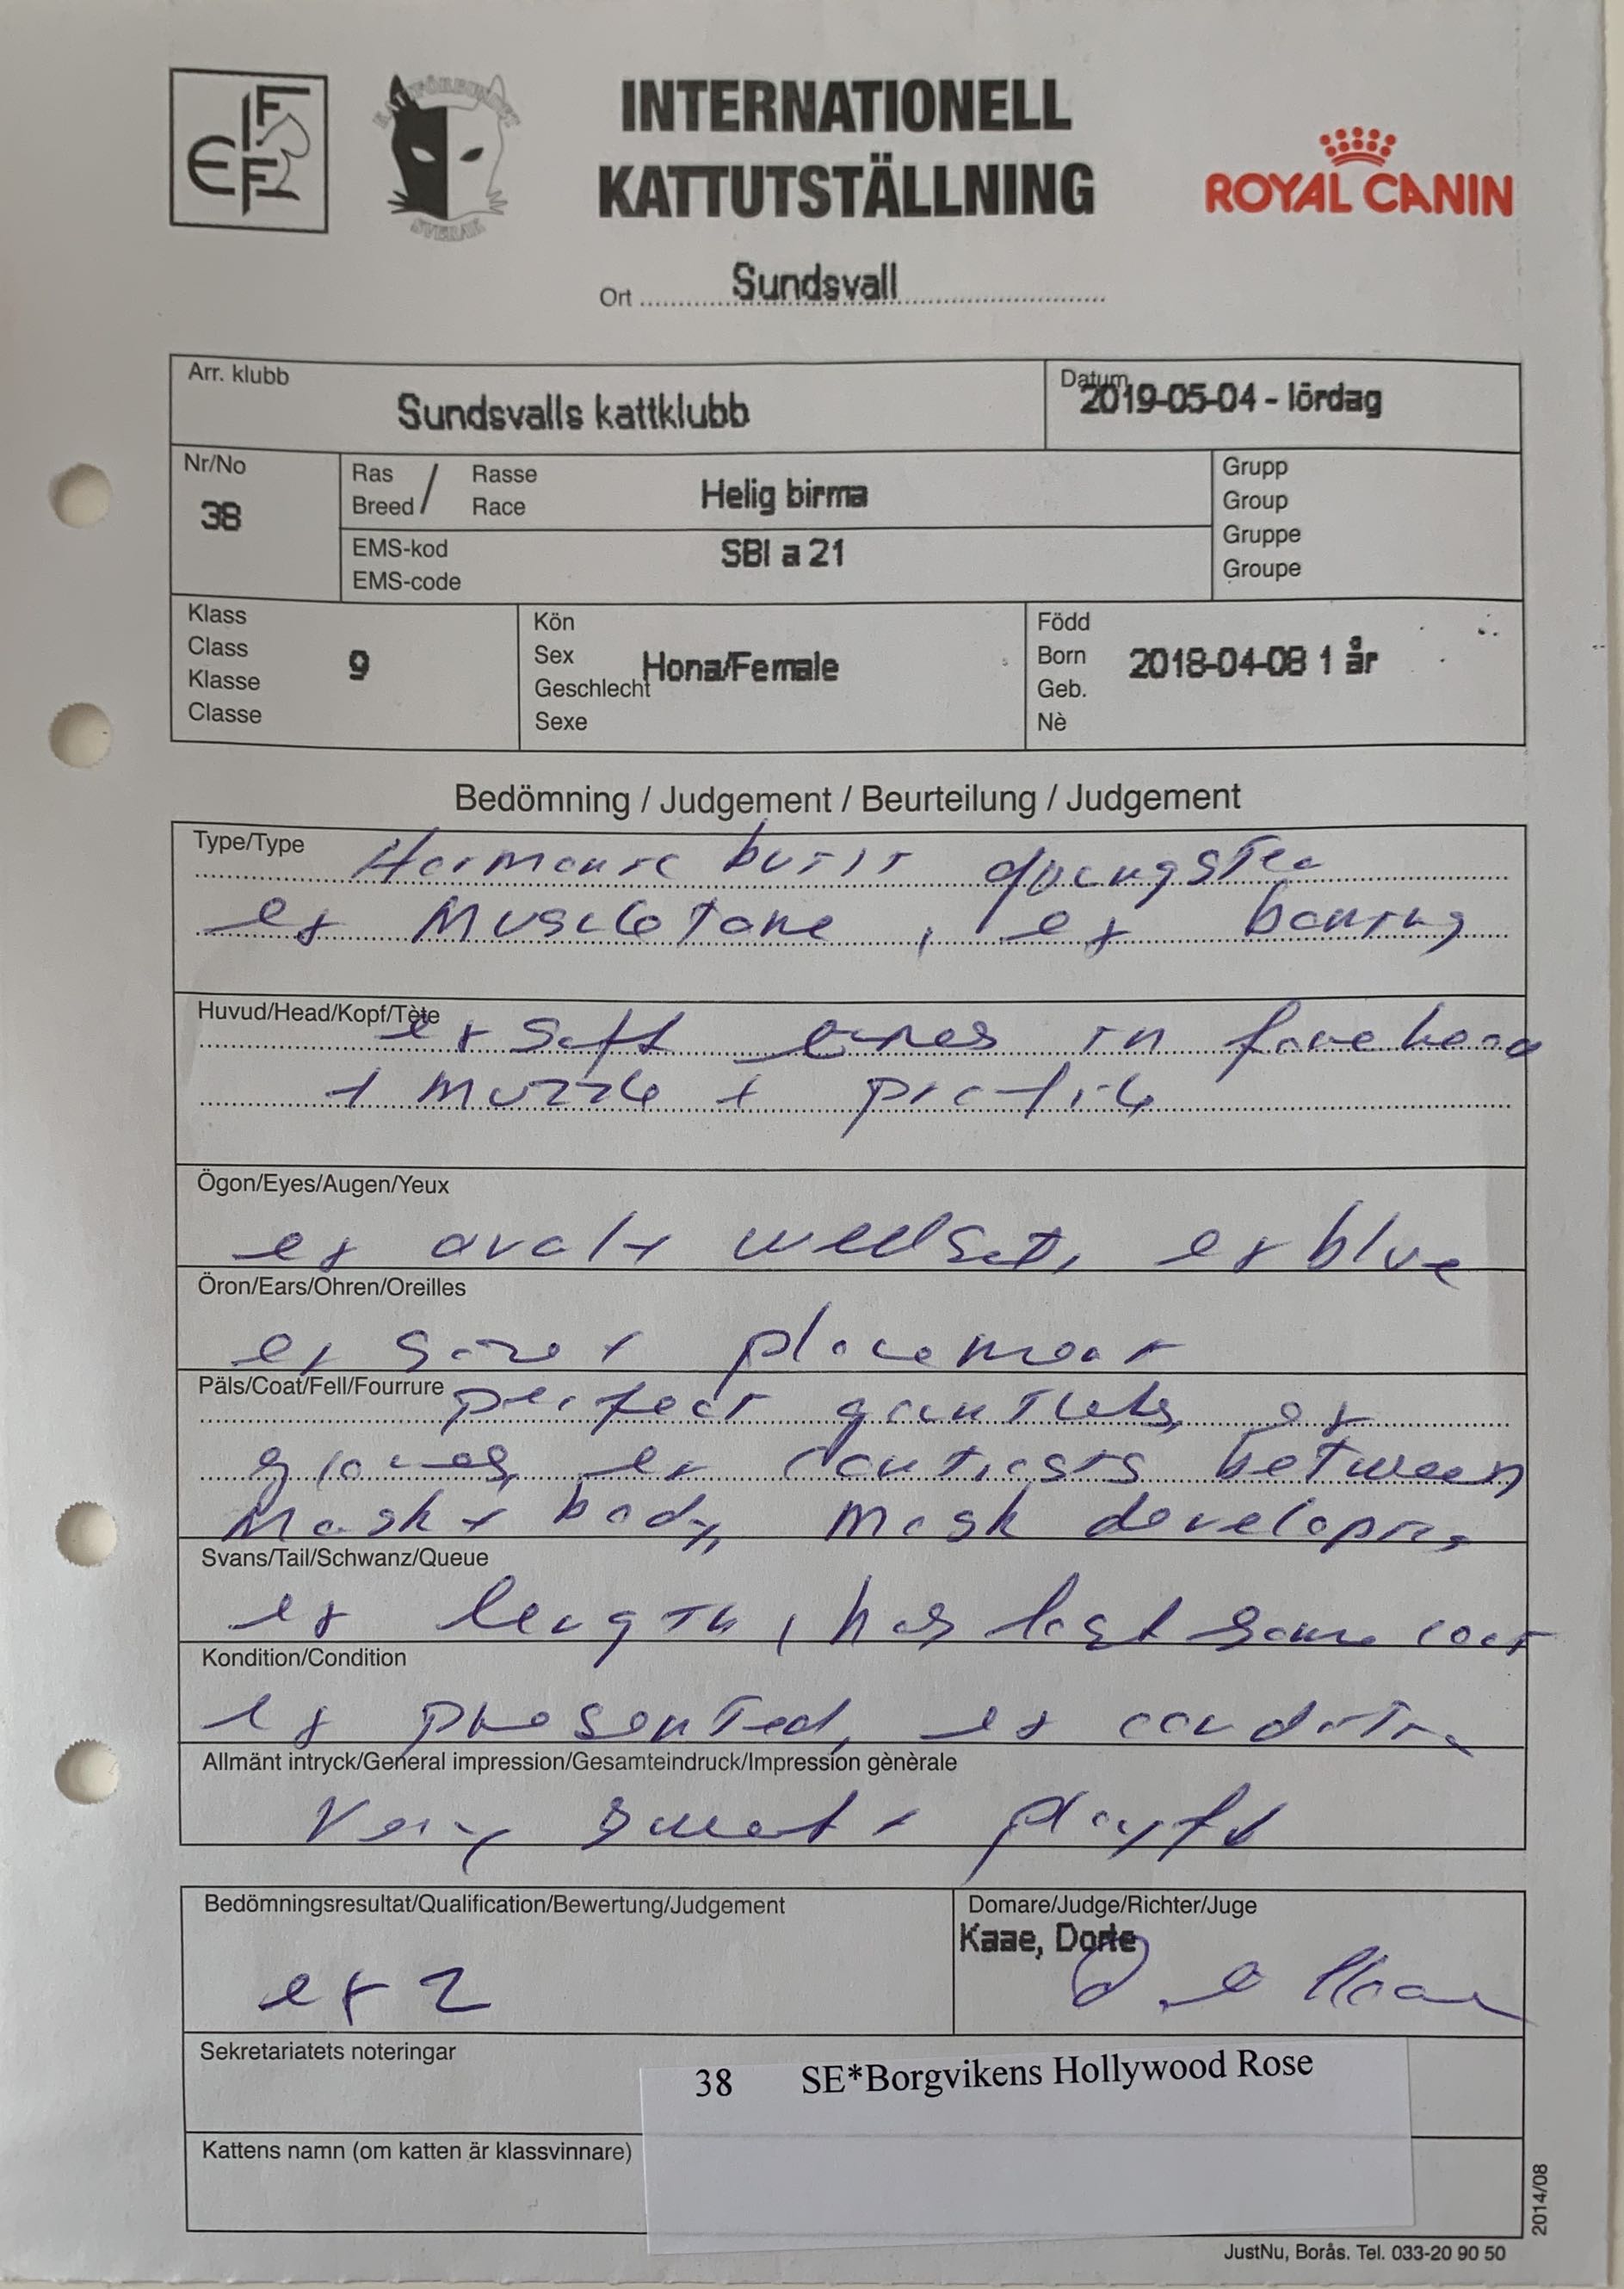 FIFE
KATTFÖRBUNDET
SVERAK
INTERNATIONELL
KATTUTSTÄLLNING
ROYAL CANIN
Ort Sundsvall
Arr. klubb
Sundsvalls kattklubb
Datum
2019-05-04 - lördag
Nr/No
38
Ras / Rasse
Breed Race
Helig birma
EMS-kod
EMS-code
SBI a 21
Grupp
Group
Gruppe
Groupe
Klass
Class
Klasse
Classe
9
Kön
Sex
Geschlecht
Sexe
Hona/Female
Född
Born
Geb.
Nè
2018-04-08 1 år
Bedömning / Judgement / Beurteilung / Judgement
Type/Type
built youngster
ex muscletone, ex boning
Huvud/Head/Kopf/Tète
ex soft lines in forehead
+ muzzle + profile
Ögon/Eyes/Augen/Yeux
ex oval + wellset, ex blue
Öron/Ears/Ohren/Oreilles
ex size + placement
Päls/Coat/Fell/Fourrure
perfect gauntlets, ex
gloves, ex contrasts between
mask + body, mask developing
Svans/Tail/Schwanz/Queue
ex length, has lost some coat
Kondition/Condition
ex presented, ex condition
Allmänt intryck/General impression/Gesamteindruck/Impression gènèrale
Very sweet + playfl
Bedömningsresultat/Qualification/Bewertung/Judgement
ex 2
Domare/Judge/Richter/Juge
Kaae, Dorte
Sekretariatets noteringar
38 SE*Borgvikens Hollywood Rose
Kattens namn (om katten är klassvinnare)
2014/08
JustNu, Borås. Tel. 033-20 90 50